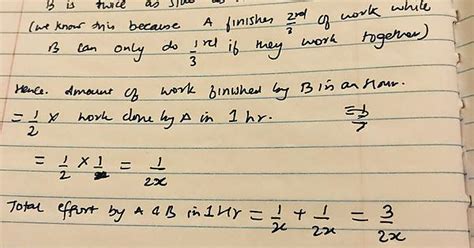 B is twice as slow as
(we know this because A finishes 2/3rd of work while
B can only do 1/3rd if they work together)
Hence. Amount of work finished by B in an Hour.
= 1/2 × work done by A in 1 hr.
= 1/2 × 1/x = 1/2x
Total effort by A & B in 1 Hr = 1/x + 1/2x = 3/2x